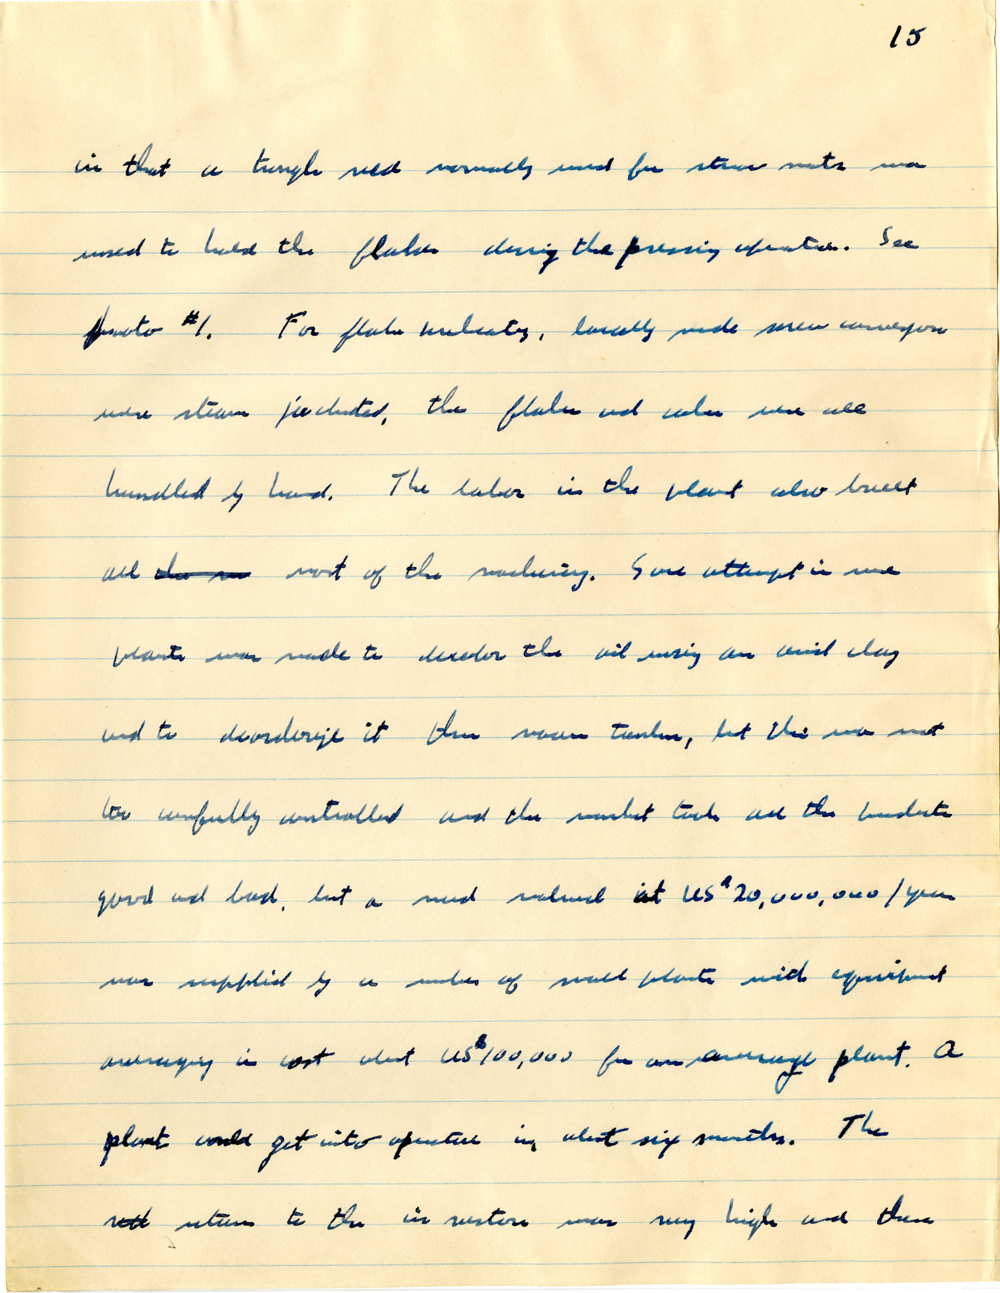 15
in that a tough reed normally used for straw mats was
used to hold the flakes during the pressing operation. See
photo #1. For flake , locally made screw conveyors
were steam jacketed, the flakes and cakes were all
handled by hand. The labor in the plant also built
all the m most of the machinery. Some attempt in some
plants was made to decolor the oil using an acid clay
and to deorderize it thru vacuum tanks, but this was not
too carefully controlled and the market took all the products
good and bad, but a need valued at US$20,000,000/year
was supplied by a number of small plants with equipment
averaging in cost about US$100,000 for an average plant. A
plant could get into operation in about six months. The
return to the investors was very high and these